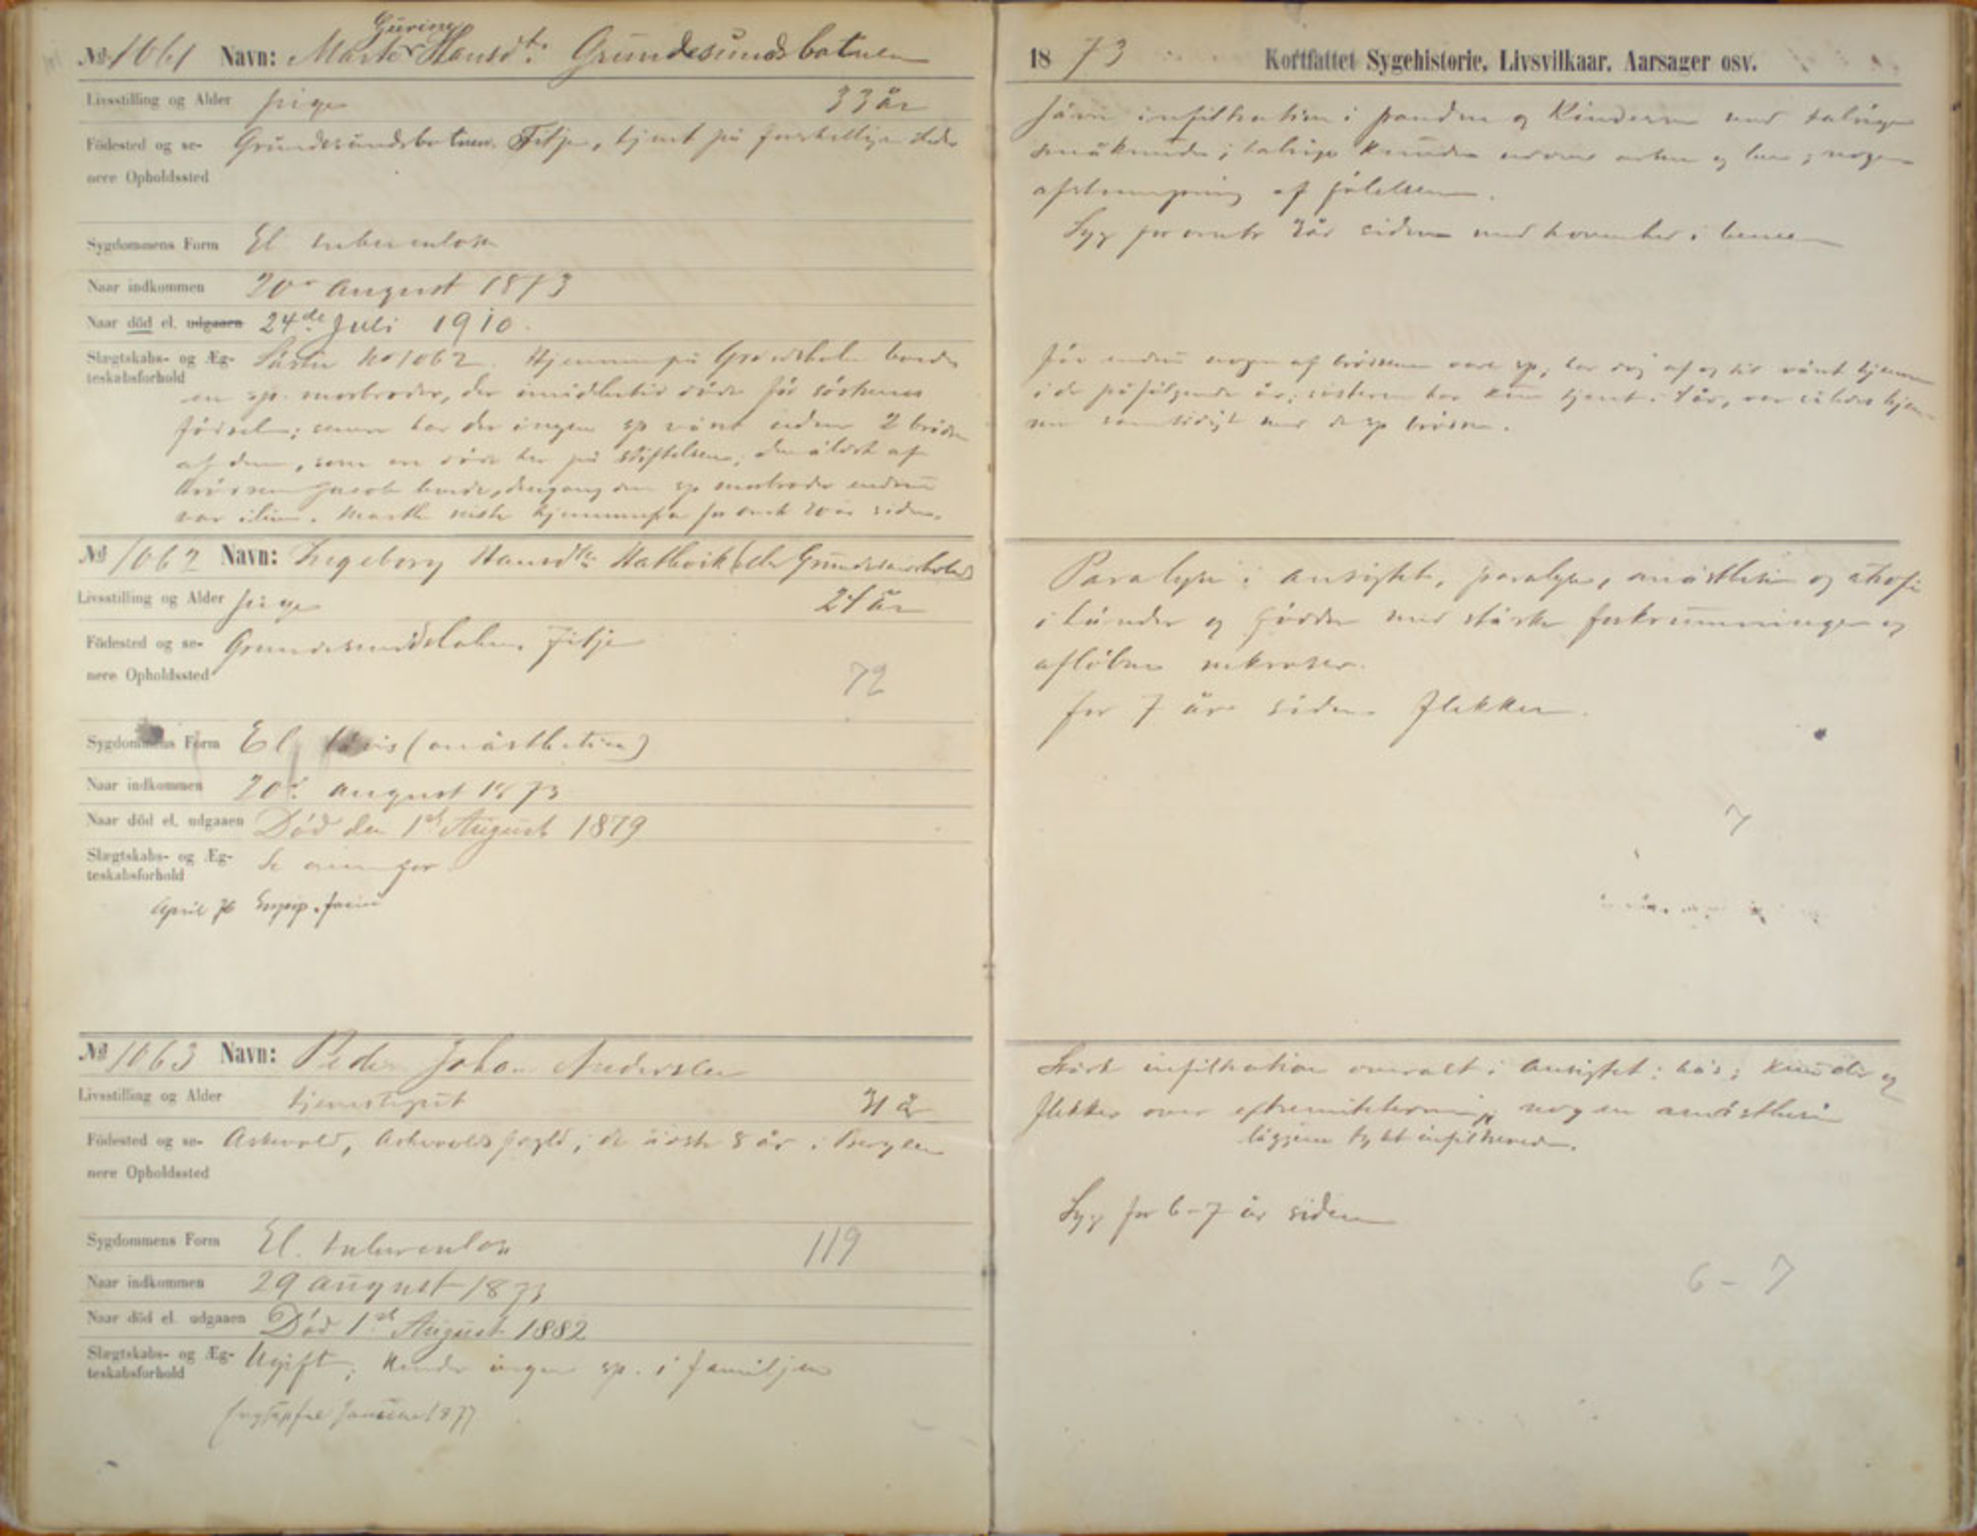 Gurine
№ 1061 Navn: Marte Hansdt: Grundesundsbotnen
Livsstilling og Alder pige 33 år
Födested og se- Grundesundsbotnen. Fitje, tjent på forskellige steder
nere Opholdssted
Sygdommens Form El. tuberculosa
Naar indkommen 20de august 1873
Naar död el. udgaaen 24de Juli 1910.
Slægtskabs- og Æg- Søster No 1062. Hjemme på
teskabsforhold
en sp. morbroder, der imidlertid døde før søsknes
fødsel; senere har der ingen sp været uden 2 brødre
af dem, som en døde her på stiftelsen; den ældste af
brødrene Jacob havde, dengang den sp morbroder endnu
var ilive. Marthe reiste hjemmefra for omtr 20 år siden.
№ 1062 Navn: Ingeborg Hansdtr Hatlevik (eller
Livsstilling og Alder pige 24 år
Födested og se- Fitje
nere Opholdssted
72
Sygdommens Form El. lævis (anæsthetica)
Naar indkommen 20de august 1873
Naar död el. udgaaen Död den 1st August 1879
Slægtskabs- og Æg- Se ovenfor
teskabsforhold
April 76
№ 1063 Navn: Peder Johan Andersen
Livsstilling og Alder tjenestegut 31 år
Födested og se- Askevold, Askevolds prgld; de sidste 8 år i Bergen
nere Opholdssted
Sygdommens Form El. tuberculosa 119
Naar indkommen 29 august 1873
Naar död el. udgaaen Död 1st August 1882
Slægtskabs- og Æg- Ugift; kender ingen sp. i familjen
teskabsforhold
Januar 1877
1873 Kortfattet Sygehistorie, Livsvilkaar, Aarsager osv.
Jævn infiltration i panden og kinderne med talrige
småknuder; talrige knuder udover arme og lår; nogen
afstumpning af følelsen.
Syg for omtr 3 år siden med hovenhed i benene
før endnu nogen af brødrene vare sp, har dog af og til været hjemme
i de påfølgende år; søsteren har kun tjent i år, var således hjem-
me samtidigt med de sp brødre.
Paralyse i ansigtet, paralyse, anæsthesi og atrofi
i hænder og fødder med stærke forkrumninger og
afløbne nekroser.
for 7 år siden flekker.
7
Stærk infiltration overalt i ansigtet; hæs; knuder og
flekker over extremiteterne; nogen anæsthesi
læggene tykt infiltrerede.
Syg for 6-7 år siden
6 - 7